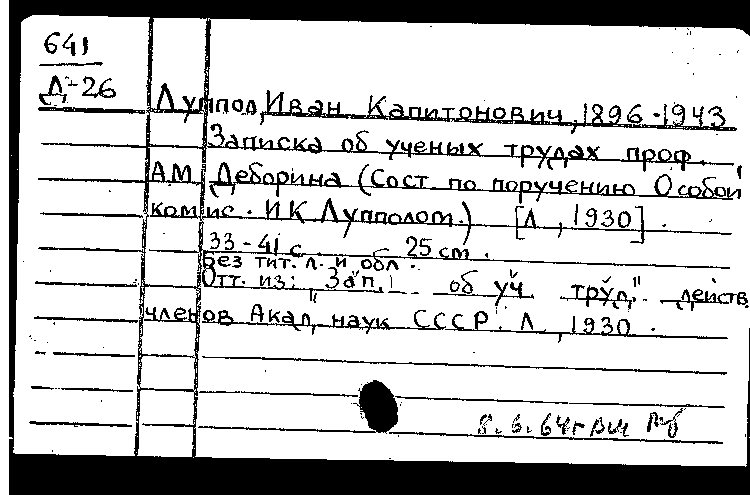 641
Д-26
Луппол, Иван Капитонович, 1896-1943
Записка об ученых трудах проф.
А.М. Деборина (Сост. по поручению Особой
комис. И.К. Лупполом.) [Л., 1930].
33-41 с. 25 см.
Без тит. л. и обл.
Отт. из: "Зап. об уч. труд." действ.
членов Акад. наук СССР. Л., 1930.
8.6.64г